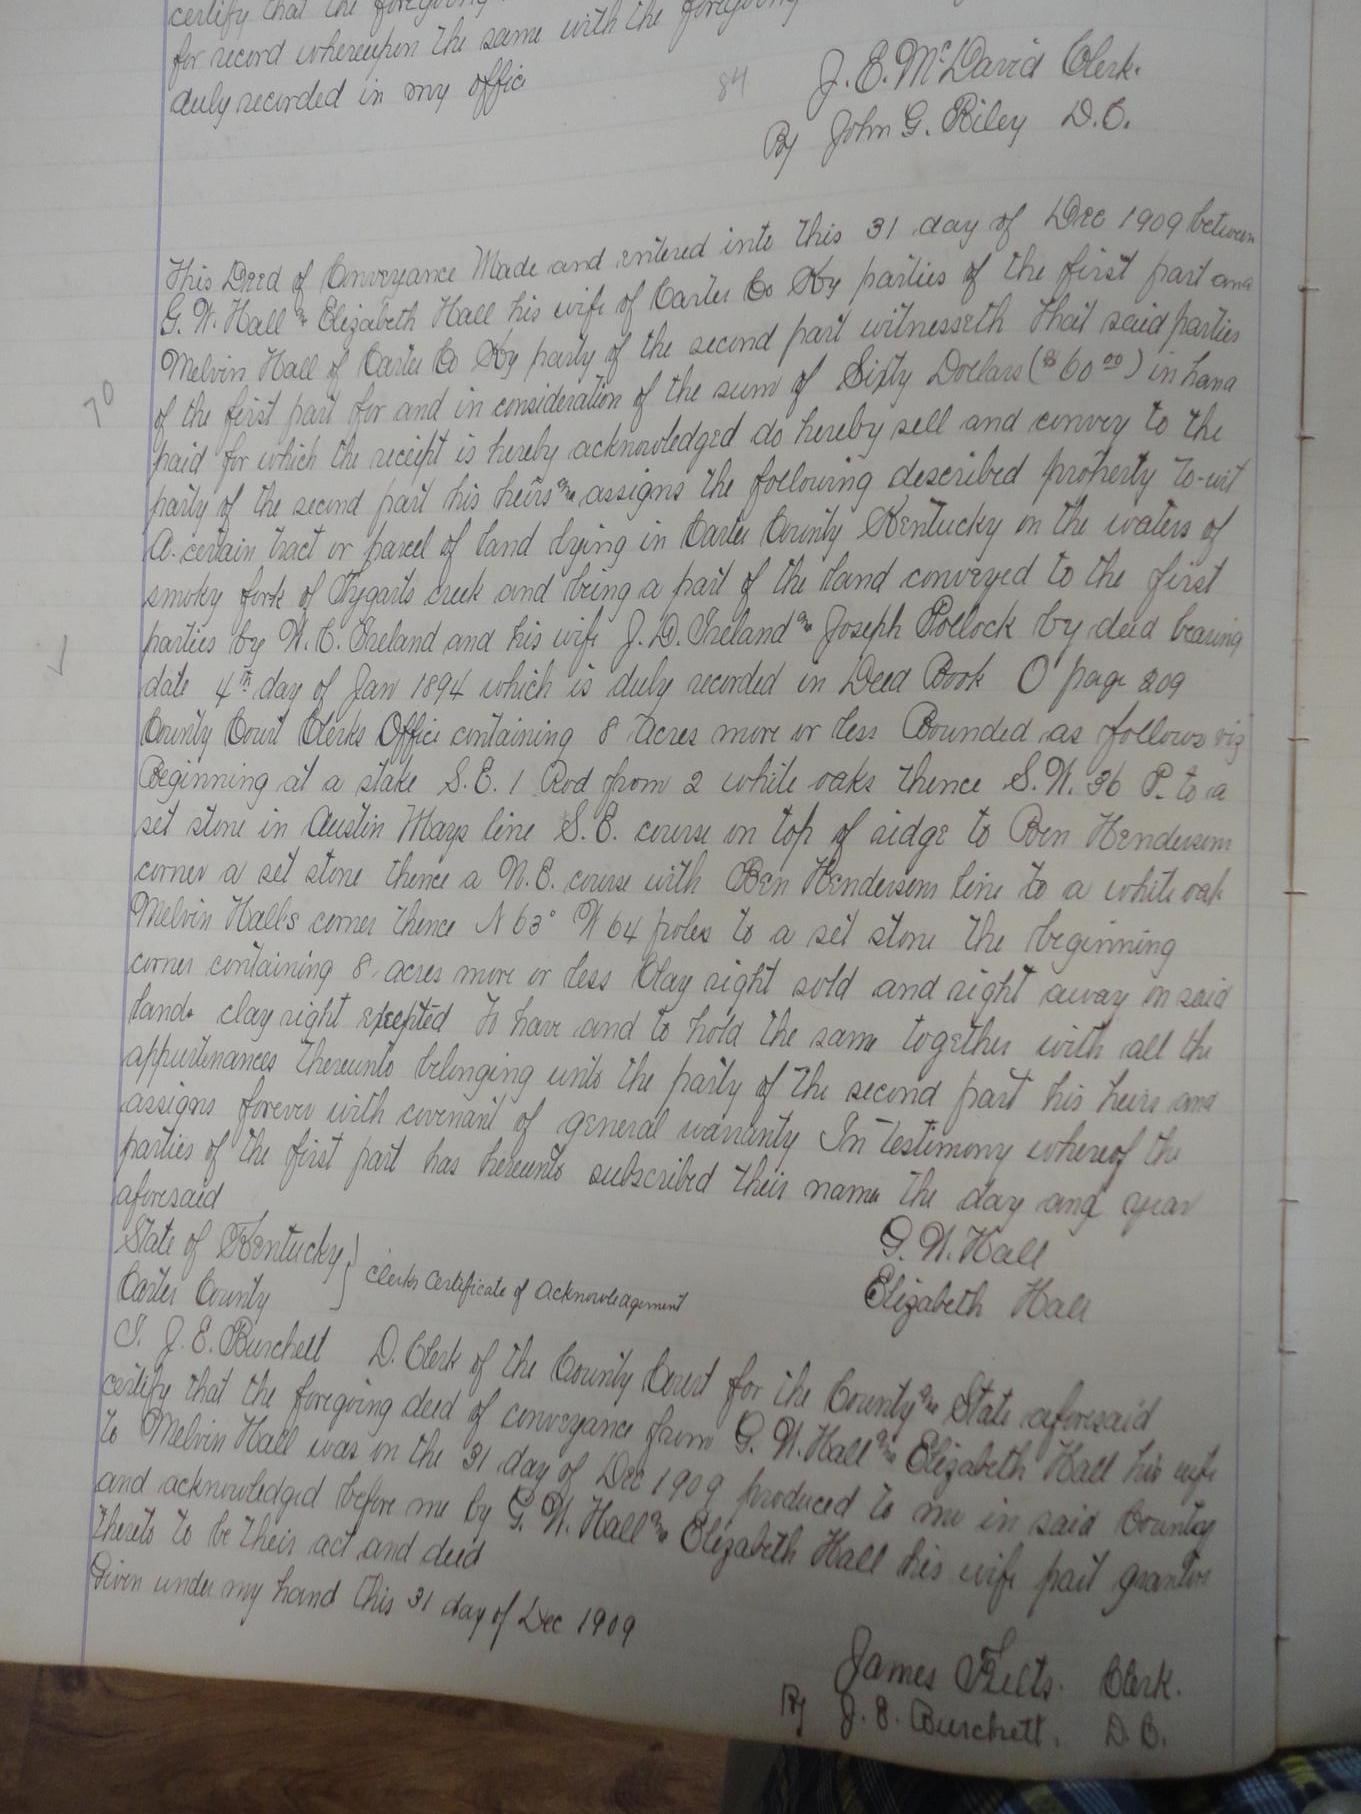 certify that the foregoing
for record whereupon the same with the foregoing
duly recorded in my offic
84
J. E. McDavid Clerk.
By John G. Riley D.C.
This Deed of Conveyance Made and entered into this 31 day of Dec 1909 between
G. W. Hall & Elizabeth Hall his wife of Carter Co Ky parties of the first part and
Melvin Hall of Carter Co Ky party of the second part witnesseth that said parties
of the first part for and in consideration of the sum of Sixty Dollars ($60 00) in hand
70
paid for which the receipt is hereby acknowledged do hereby sell and convey to the
party of the second part his heirs & assigns the following described property to-wit
A. certain tract or parcel of land lying in Carter County Kentucky on the waters of
smoky fork of Tygarts creek and being a part of the land conveyed to the first
parties by W. C. Ireland and his wife J. D. Ireland & Joseph Pollock by deed bearing
date 4th day of Jan 1894 which is duly recorded in Deed Book O' page 209
County Court Clerks Office containing 8 acres more or less Bounded as follows viz
Beginning at a stake S.E. 1 Rod from 2 white oaks thence S.W. 36 P. to a
set stone in Austin Mays line S.E. course on top of ridge to Ben Hendersons
corner a set stone thence a N.E. course with Ben Hendersons line to a white oak
Melvin Halls corner thence N 63° W 64 poles to a set stone the beginning
corner containing 8 acres more or less Clay right sold and right away on said
land. clay right excepted To have and to hold the same together with all the
appurtenances thereunto belonging unto the party of the second part his heirs and
assigns forever with covenant of general warranty In testimony whereof the
parties of the first part has hereunto subscribed their name the day and year
aforesaid
G. W. Hall
Elizabeth Hall
State of Kentucky }
Carter County } Clerks Certificate of Acknowledgement
I. J. E. Burchett D. Clerk of the County Court for the County & State aforesaid
certify that the foregoing deed of conveyance from G. W. Hall & Elizabeth Hall his wife
to Melvin Hall was on the 31 day of Dec 1909 produced to me in said County
and acknowledged before me by G. W. Hall & Elizabeth Hall his wife part grantors
thereto to be their act and deed
Given under my hand this 31 day of Dec 1909
James Fults. Clerk.
By J. E. Burchett. D.C.